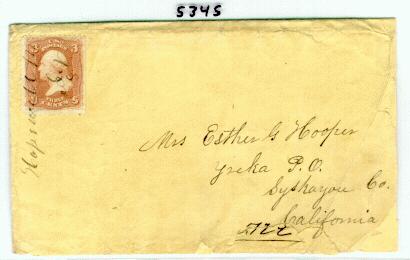 5345
U.S. POSTAGE
3 3
THREE
CENTS
Mrs Esther G Hooper
Yreka P.O.
Syskayou Co.
California